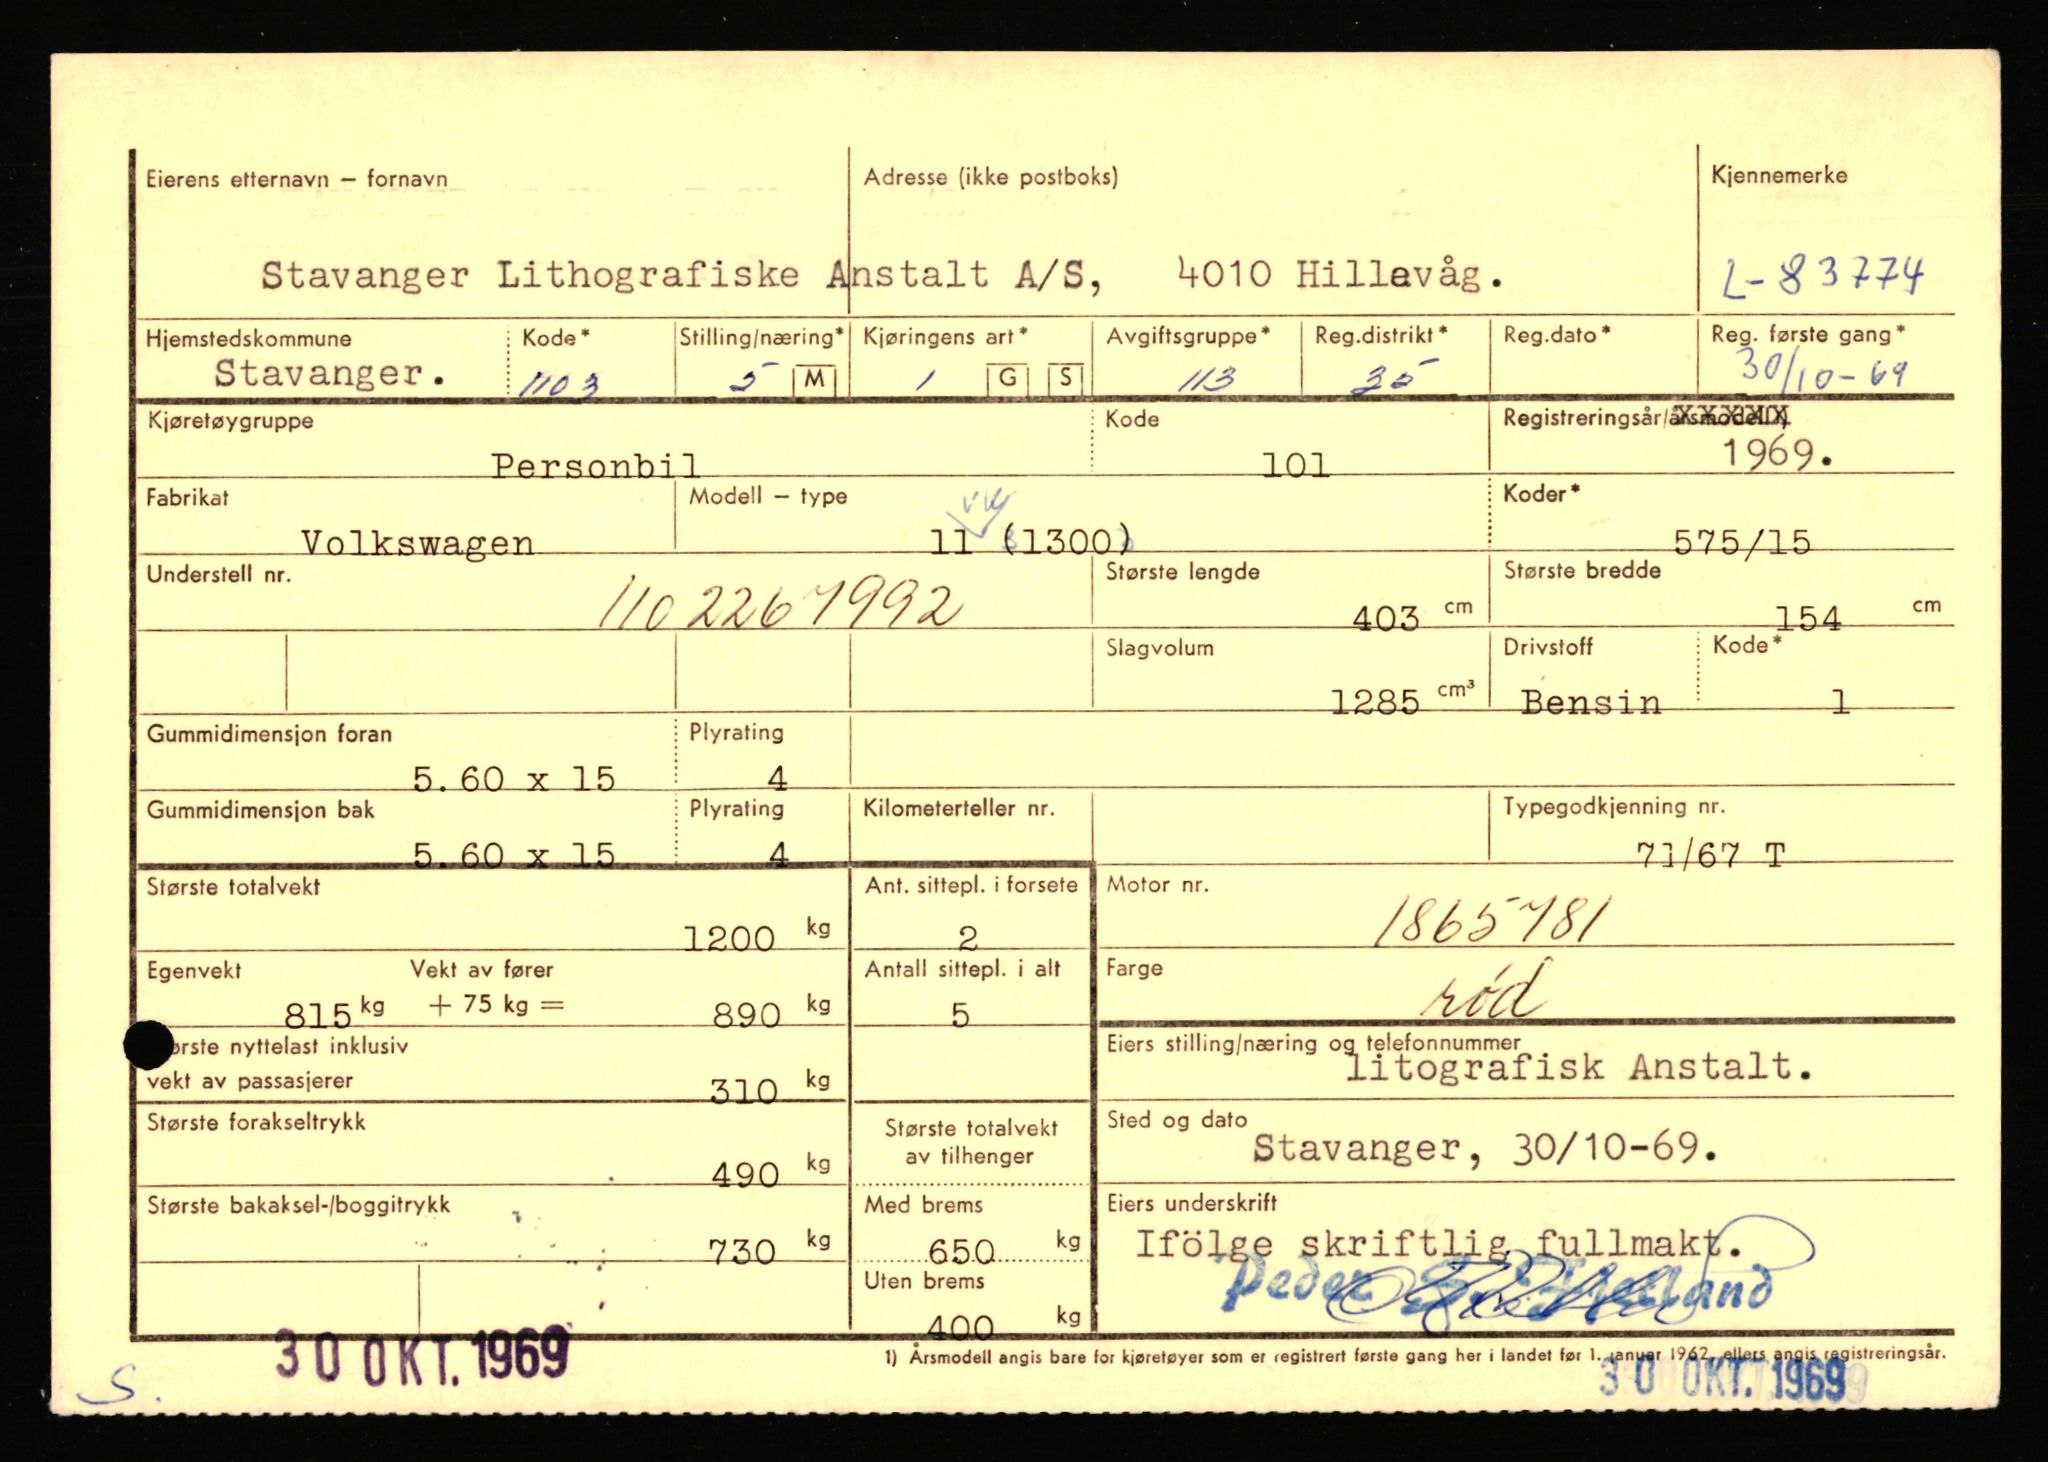 Eierens etternavn – fornavn Adresse (ikke postboks) Kjennemerke
Stavanger Lithografiske Anstalt A/S, 4010 Hillevåg. L-83774
Hjemstedskommune Kode* Stilling/næring* Kjøringens art* Avgiftsgruppe* Reg.distrikt* Reg.dato* Reg. første gang*
Stavanger. 1103 5 M 1 G S 113 35 30/10-69
Kjøretøygruppe Kode Registreringsår/årsmodell1)
Personbil 101 1969.
Fabrikat Modell – type Koder*
VW
Volkswagen 11 (1300) 575/15
Understell nr. Største lengde Største bredde
1102267992 403 cm 154 cm
Slagvolum Drivstoff Kode*
1285 cm³ Bensin 1
Gummidimensjon foran Plyrating
5.60 x 15 4
Gummidimensjon bak Plyrating Kilometerteller nr. Typegodkjenning nr.
5.60 x 15 4 71/67 T
Største totalvekt Ant. sittepl. i forsete Motor nr.
1200 kg 2 1865781
Egenvekt Vekt av fører Antall sittepl. i alt Farge
815 kg + 75 kg = 890 kg 5 rød
ørste nyttelast inklusiv Eiers stilling/næring og telefonnummer
vekt av passasjerer 310 kg litografisk Anstalt.
Største forakseltrykk Største totalvekt Sted og dato
av tilhenger
490 kg Stavanger, 30/10-69.
Største bakaksel-/boggitrykk Med brems Eiers underskrift
730 kg 650 kg Ifölge skriftlig fullmakt.
Uten brems Peder
400 kg
30 OKT. 1969
1) Årsmodell angis bare for kjøretøyer som er registrert første gang her i landet før 1. januar 1962, ellers angis registreringsår.
30 OKT. 1969
S.